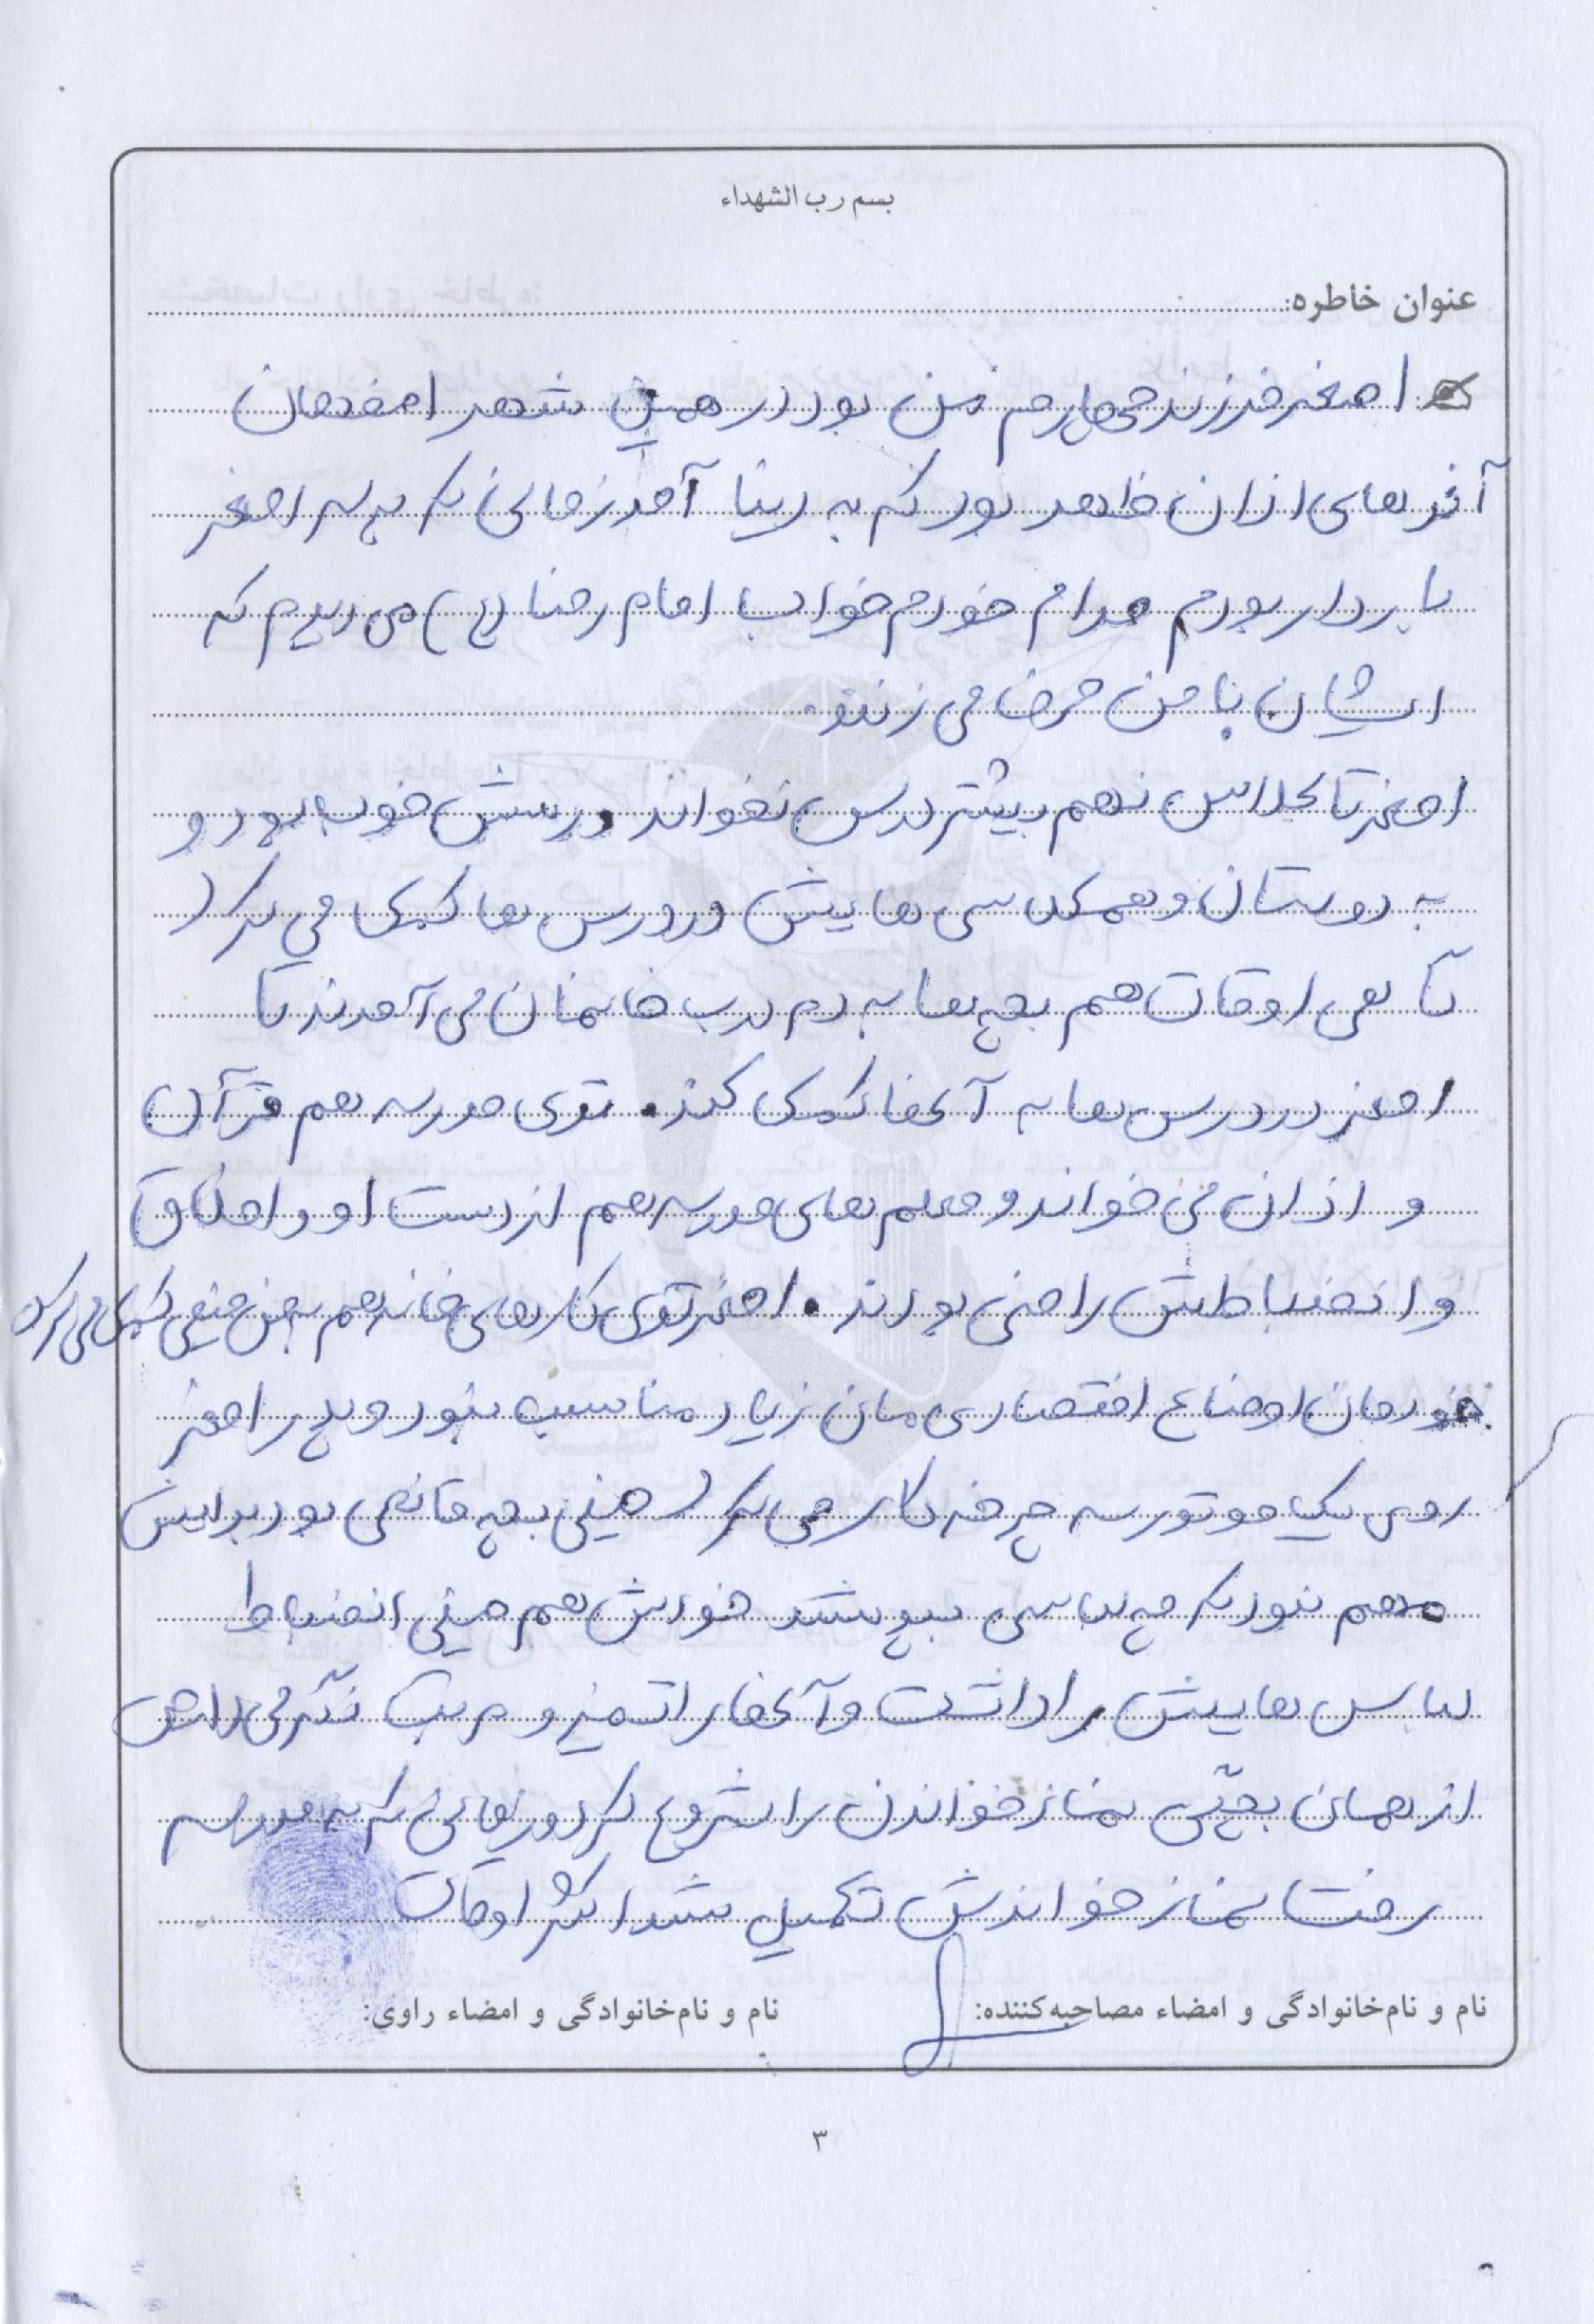 بسم رب الشهداء
عنوان خاطره:
اصغر فرزند چهارم من بود در همین شهر اصفهان
آخرهای اذان ظهر بود که به دنیا آمد زمانی که به اصغر
باردار بودم مدام خودم خواب امام رضا (ع) می دیدم که
ایشان با من حرف می زنند.
اصغر تا کلاس نهم بیشتر درس نخواند درسش خوب بود و
به دوستان و همکلاسی هایش در درس ها کمک می کرد
گاهی اوقات هم بچه ها به دم درب خانمان می آمدند تا
اصغر در درس ها به آنها کمک کند. توی مدرسه هم قرآن
و اذان می خواند و معلم های مدرسه هم از دست او و اخلاق
و انضباطش راضی بودند. اصغر توی کارهای خانه هم به من خیلی کمک می کرد
خودمان اوضاع اقتصادی مان زیاد مناسب نبود و پدر اصغر
روی یک موتور سه چرخه کار می کرد خیلی بچه قانعی بود برایش
مهم نبود که چه لباسی بپوشد خودش هم خیلی انضباط
لباس هایش را داشت و آنها را تمیز و مرتب نگه می داشت
از همان بچگی نماز خواندن را شروع کرد و زمانی که به مدرسه
رفت نماز خواندش تکمیل شد اکثر اوقات
نام و نام‌خانوادگی و امضاء مصاحبه‌کننده: نام و نام‌خانوادگی و امضاء راوی:
۳